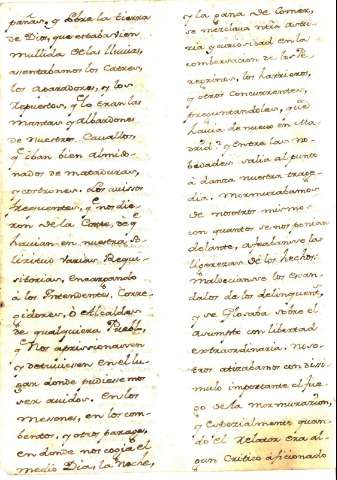 pañas, y sobre la tierra
de Dios, que estaba bien
mullida de las lluvias,
asentabamos los Catres,
los aparadores, y los
repuestos, y lo eran las
mantas y albardones
de nuestros Cavallos,
que iban bien almido-
nados de mataduras,
y costurones. Los avisos
frequentes, que nos die-
ron de la Corte, de que
havian en nuestra so-
licitud varias Requi-
sitorias, encargando
à los Intendentes, Corre-
gidores, ò Alcaldes
de qualquiera Pueblo,
que Nos aprissionassen
y detuviesen en el lu-
gar donde pudiesemos
ser avidos. En los
mesones, en los com-
bentos, y otros parages,
en donde nos cogia el
medio Dia, la noche,
y la gana de Comer,
se mezclava ntra astu-
ria y curiosidad en la
combersacion de los Pe-
regrinos, los harrieros,
y otros Concurrentes,
preguntandoles, que
havia de nuevo en Ma-
drid? y entre las no-
bedades salia al punto
à danza nuestra trage-
dia. Mormurabamos
de nosotros mismos
con quantos se nos ponian
delante, afeabanse las
ligerezas de los hechos:
Maldecianse los escan-
dalos de los delinquentes,
y se glosaba sobre el
asumpto con libertad
extraordinaria. Noso-
tros atizabamos con disi-
mulo importante el fue-
go de la mormurazion,
y especialmente quan-
do el Relator era al-
gun Critico aficionado